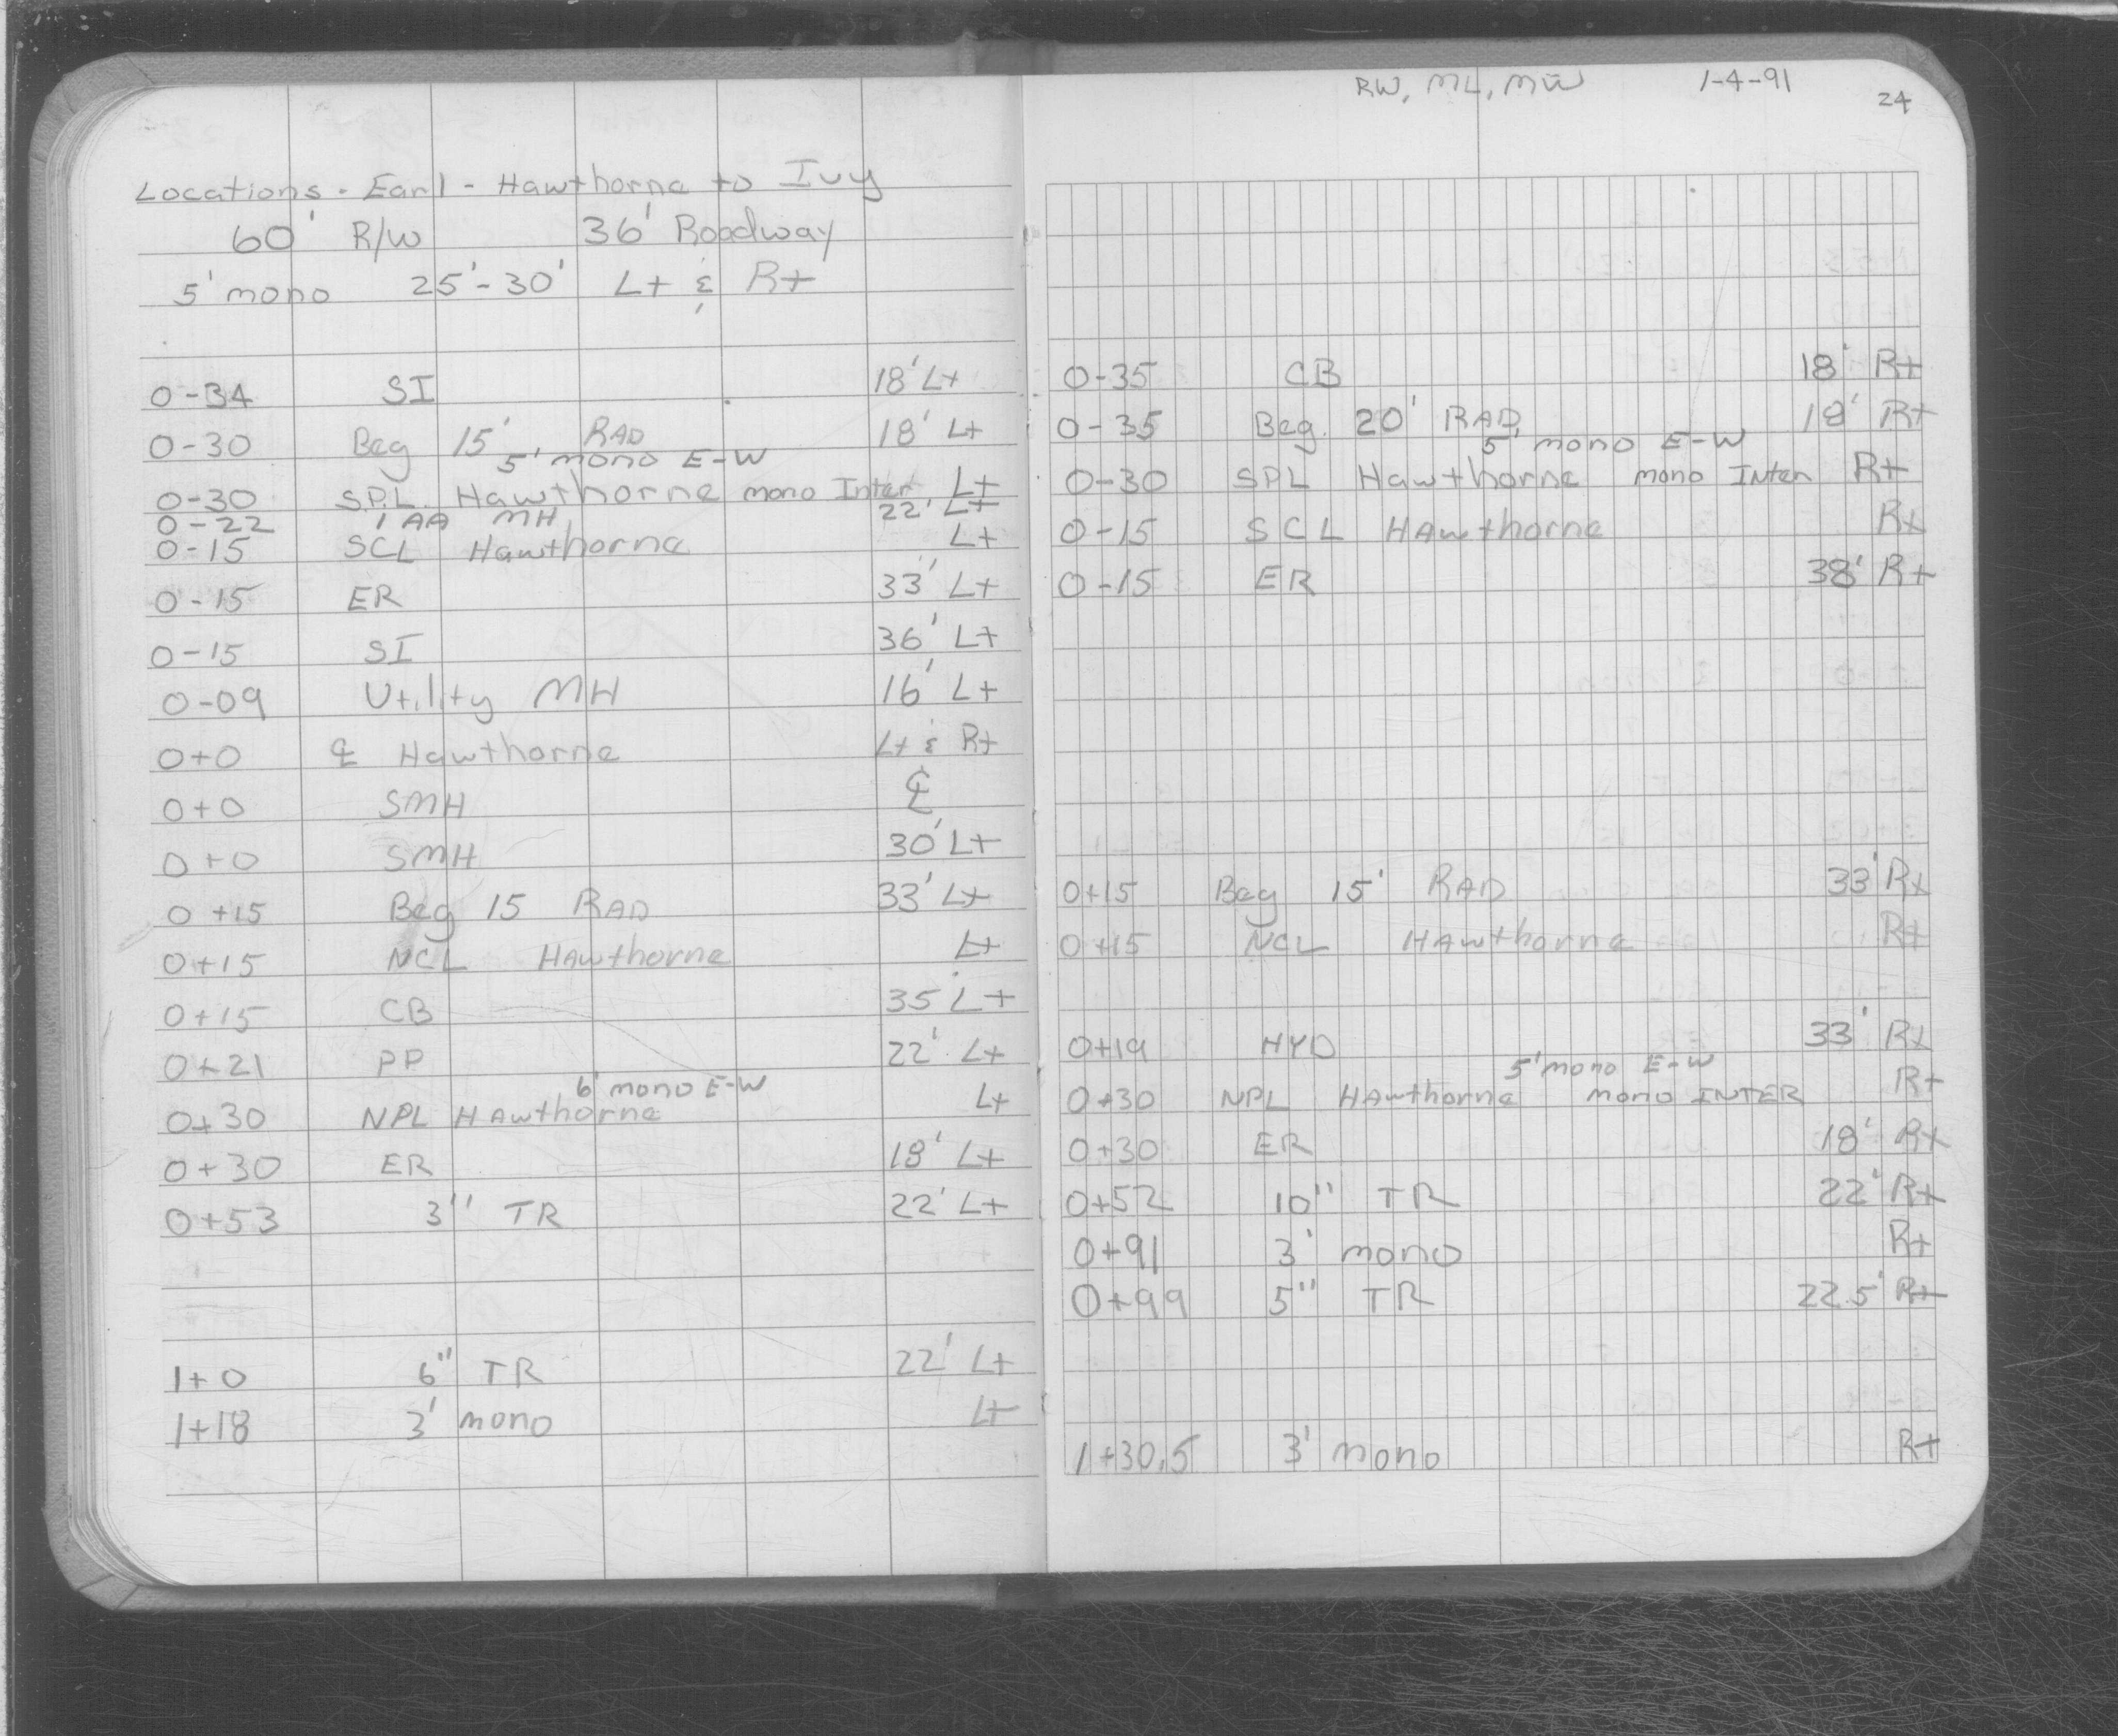 Locations - Earl - Hawthorne to Ivy
60' R/W 36' Roadway
5' mono 25'-30' Lt & Rt
0-34 SI 18' Lt
0-30 Beg 15' RAD 18' Lt
5' mono E-W
0-30 SPL Hawthorne mono Inter. Lt
0-22 1 AA MH 22' Lt
0-15 SCL Hawthorne Lt
0-15 ER 33' Lt
0-15 SI 36' Lt
0-09 Utility MH 16' Lt
0+0 ℄ Hawthorne Lt & Rt
0+0 SMH ℄
0+0 SMH 30' Lt
0+15 Beg 15 RAD 33' Lt
0+15 NCL HAwthorne Lt
0+15 CB 35' Lt
0+21 PP 22' Lt
6' mono E-W
0+30 NPL HAwthorne Lt
0+30 ER 18' Lt
0+53 3" TR 22' Lt
1+0 6" TR 22' Lt
1+18 3' mono Lt
RW, ML, MW 1-4-91
24
0-35 CB 18' Rt
0-35 Beg. 20' RAD 18' Rt
5' mono E-W
0-30 SPL Hawthorne mono Inter Rt
0-15 SCL HAwthorne Rt
0-15 ER 38' Rt
0+15 Beg 15' RAD 33' Rt
0+15 NCL HAwthorne Rt
0+19 HYD 33' Rt
5' mono E-W
0+30 NPL HAwthorne mono INTER Rt
0+30 ER 18' Rt
0+52 10" TR 22' Rt
0+91 3' mono Rt
0+99 5" TR 22.5' Rt
1+30.5 3' mono Rt